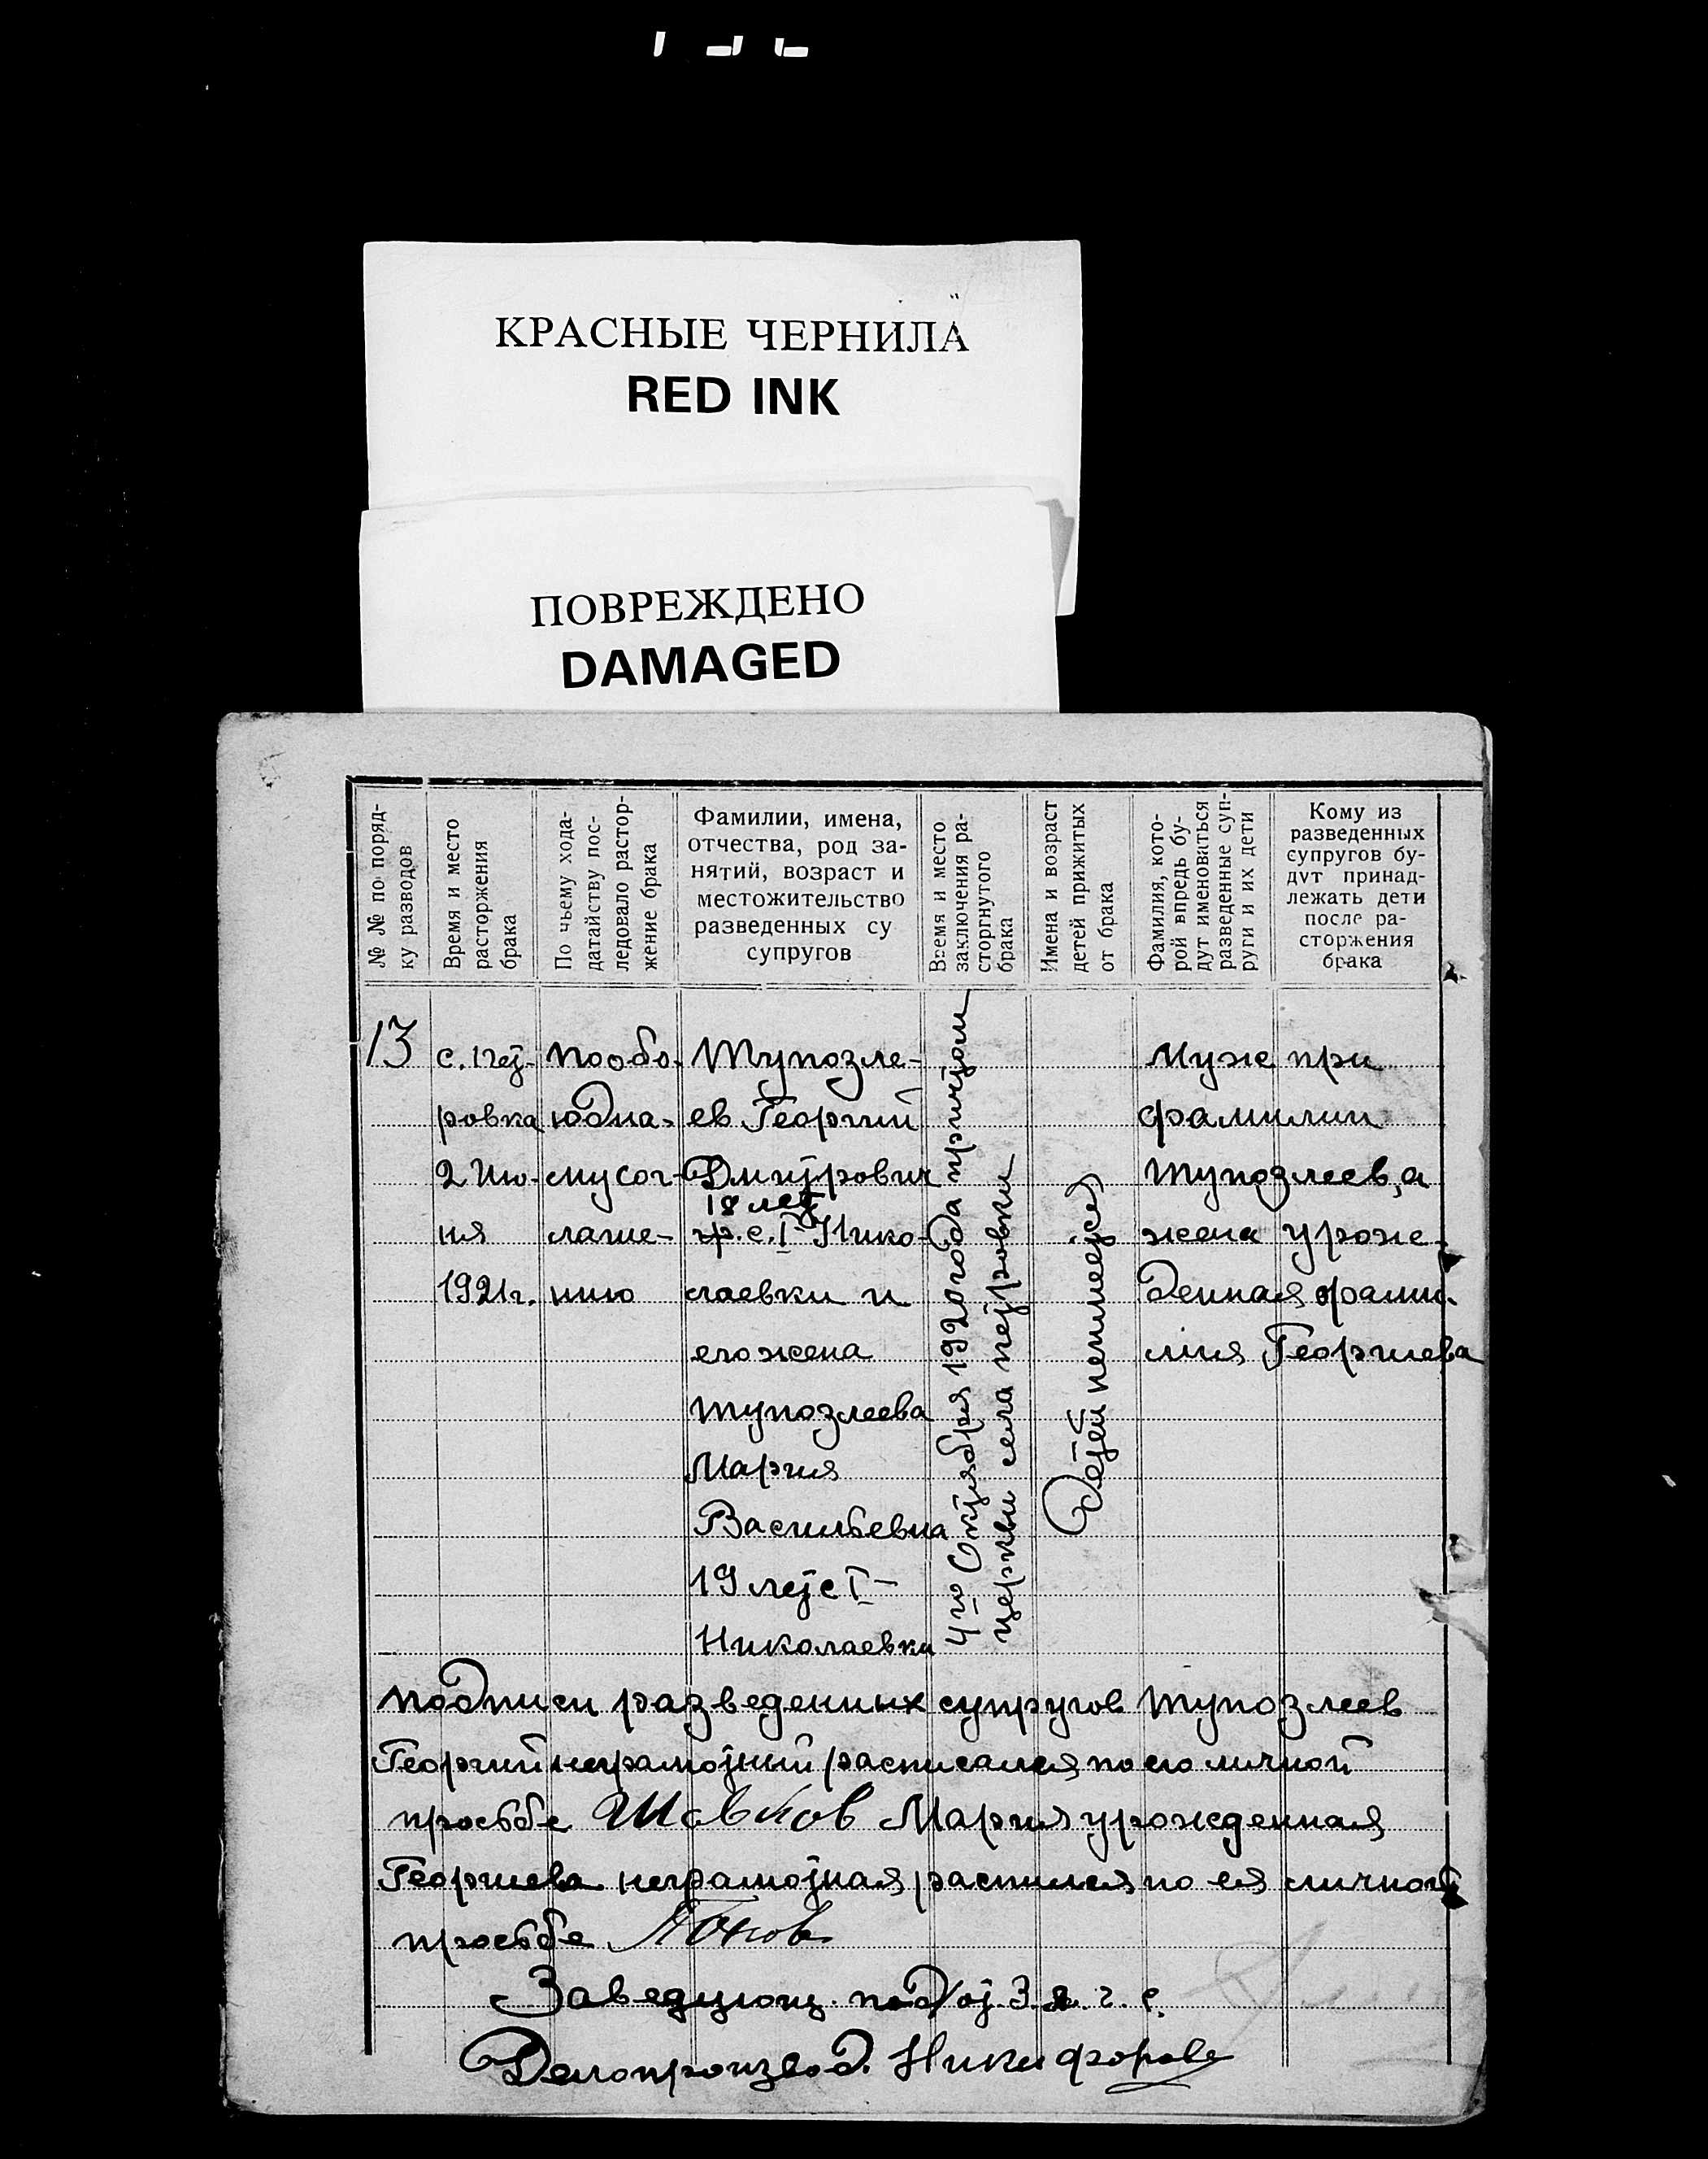 КРАСНЫЕ ЧЕРНИЛА
RED INK
ПОВРЕЖДЕНО
DAMAGED
№ № по поряд-
ку разводов
Время и место
расторжения
брака
По чьему хода-
датайству пос-
ледовало растор-
жение брака
Фамилии, имена,
отчества, род за-
нятий, возраст и
местожительство
разведенных су
супругов
Время и место
заключения ра-
сторгнутого
брака
Имена и возраст
детей прижитых
от брака
Фамилия, кото-
рой впредь бу-
дут именоваться
разведенные суп-
руги и их дети
Кому из
разведенных
супругов бу-
дут принад-
лежать дети
после ра-
сторжения
брака
13
с. Пет-
ровка
2 Ию-
ня
1921г.
по обо-
юдна-
му сог-
лаше-
нию
Тупозле-
ев Георгий
Дмитрович
18 лет
гр. с. I-Нико-
лаевки и
его жена
Тупозлеева
Мария
Васильевна
19 лет с I-
Николаевки
4го Октября 1920 года причтом
церкви села петровки
Детей неимеется
Муж при
фамилии
Тупозлеев, а
жена урож-
денная фами-
лия Георгиева
подписи разведенных супругов Тупозлеев
Георгий неграмотный расписался по его личной
просьбе Шевков Мария урожденная
Георгиева неграмотная расписался по ея личной
просьбе
Заведующ. под/от. З. а. г. с.
Делопроизвод. Никифоров